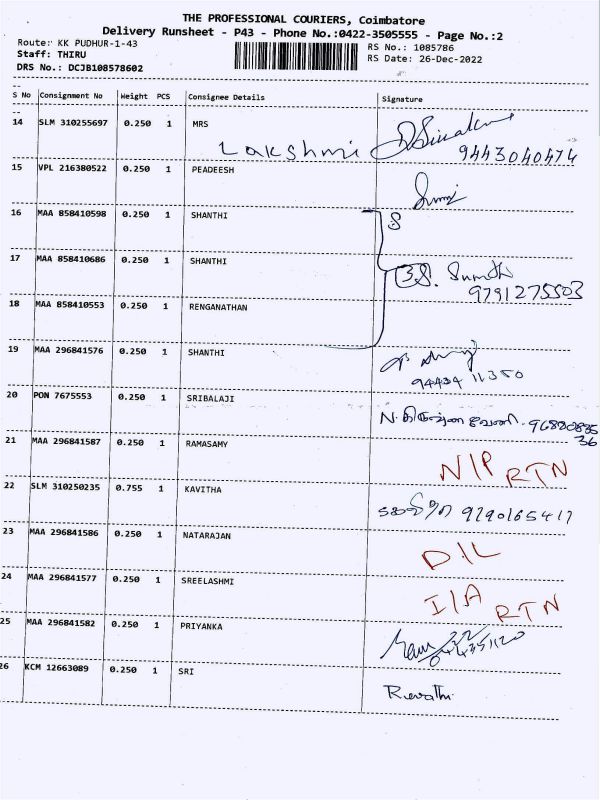 THE PROFESSIONAL COURIERS, Coimbatore
Delivery Runsheet - P43 - Phone No.:0422-3505555 - Page No.:2
Route: KK PUDHUR-1-43 RS No.: 1085786
Staff: THIRU RS Date: 26-Dec-2022
DRS No.: DCJB108578602
S No Consignment No Weight PCS Consignee Details Signature
14 SLM 310255697 0.250 1 MRS
Lakshmi
9443040474
15 VPL 216380522 0.250 1 PEADEESH
16 MAA 858410598 0.250 1 SHANTHI S
17 MAA 858410686 0.250 1 SHANTHI
9791275503
18 MAA 858410553 0.250 1 RENGANATHAN
19 MAA 296841576 0.250 1 SHANTHI
94434 11350
20 PON 7675553 0.250 1 SRIBALAJI
21 MAA 296841587 0.250 1 RAMASAMY
36
N/P RTN
22 SLM 310250235 0.755 1 KAVITHA
9790165417
23 MAA 296841586 0.250 1 NATARAJAN D/L
24 MAA 296841577 0.250 1 SREELASHMI I/A RTN
25 MAA 296841582 0.250 1 PRIYANKA
26 KCM 12663089 0.250 1 SRI Revathi